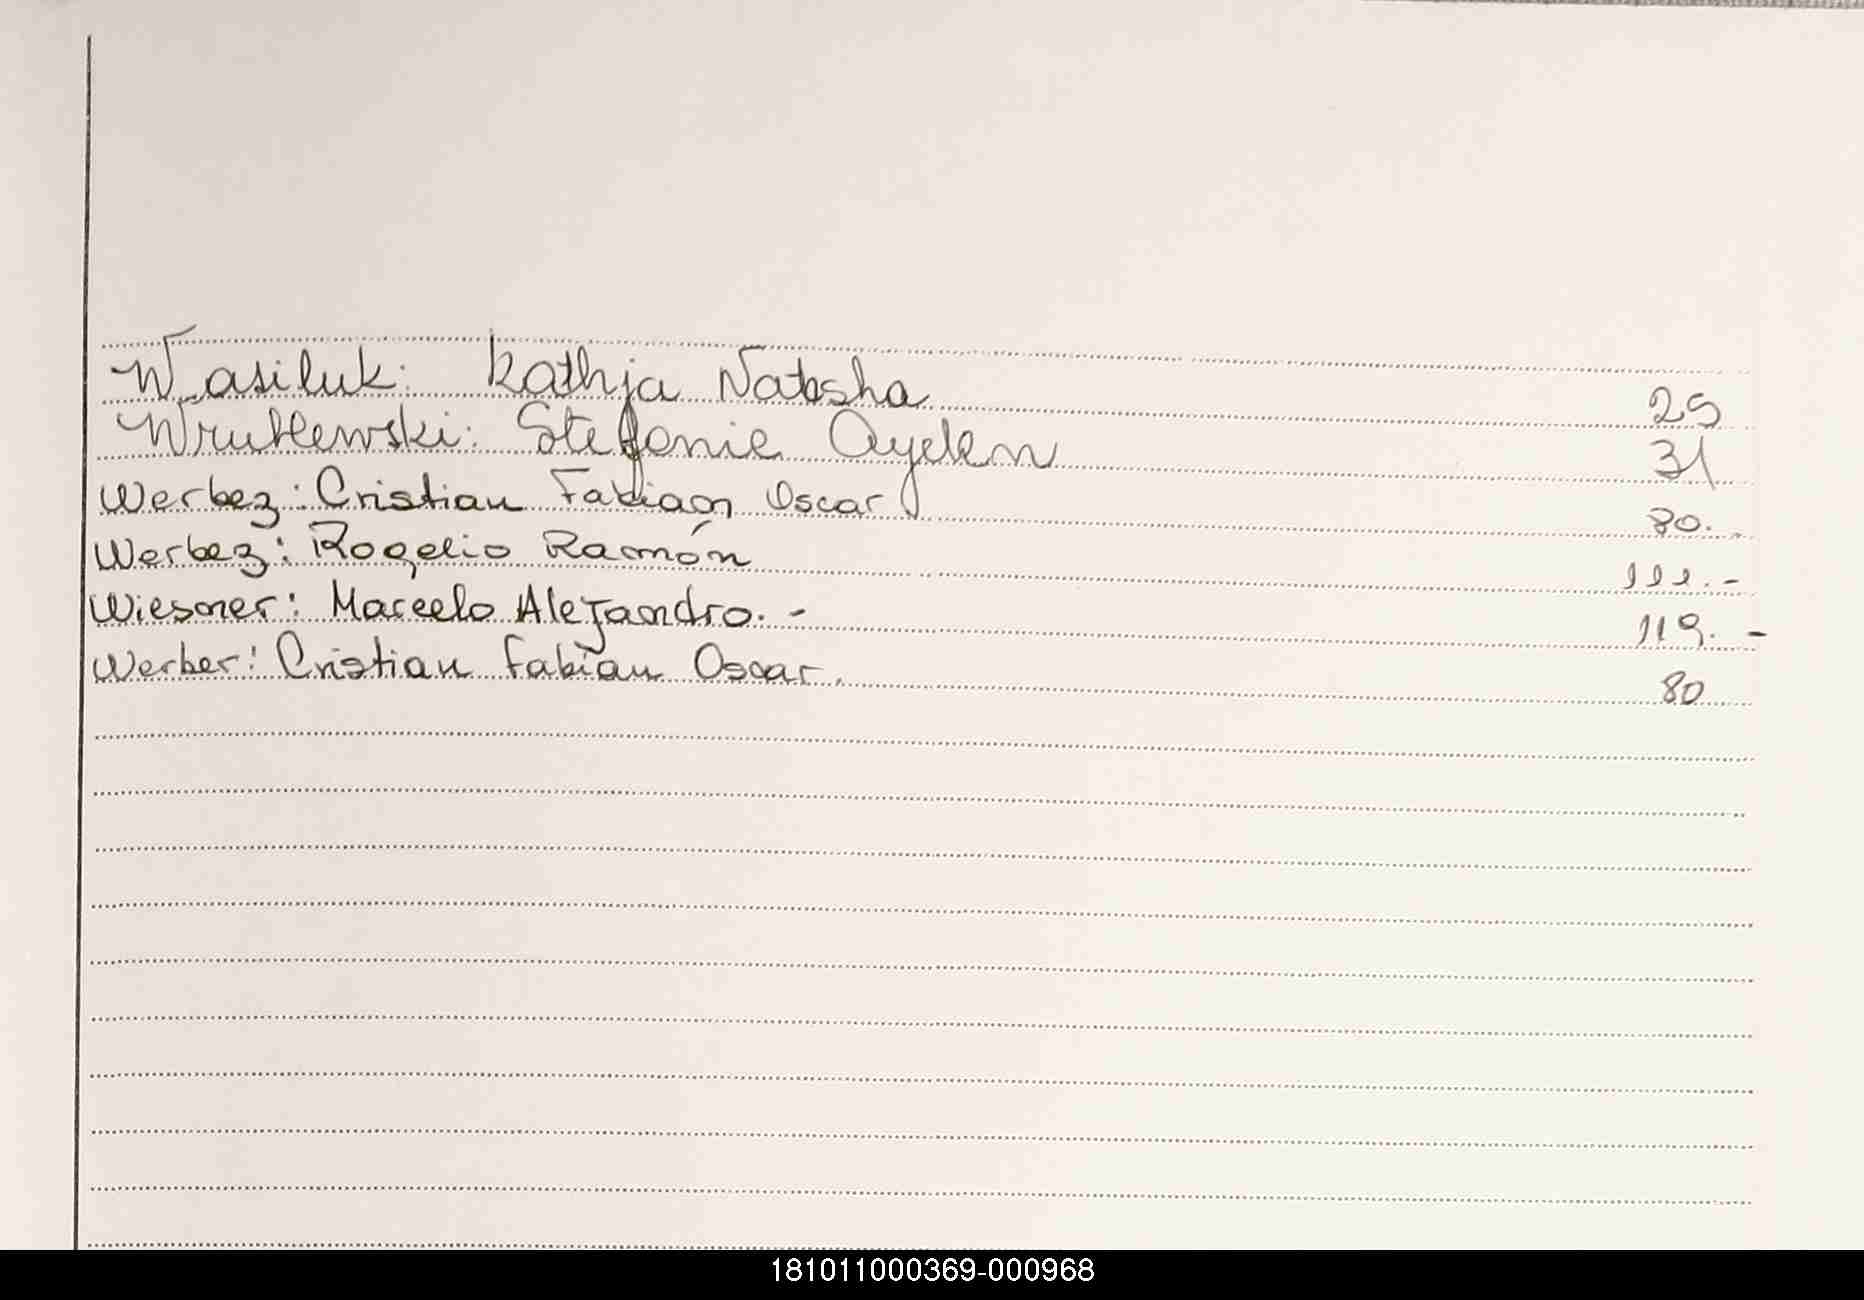 Wasiluk: Kathja Natasha 25
Wrublewski: Stefanie Ayelen 31
Werbez: Cristian Fabian Oscar 80.-
Werbez: Rogelio Ramón 111.-
Wiesner: Marcelo Alejandro.- 119.-
Werber: Cristian Fabian Oscar. 80
181011000369-000968